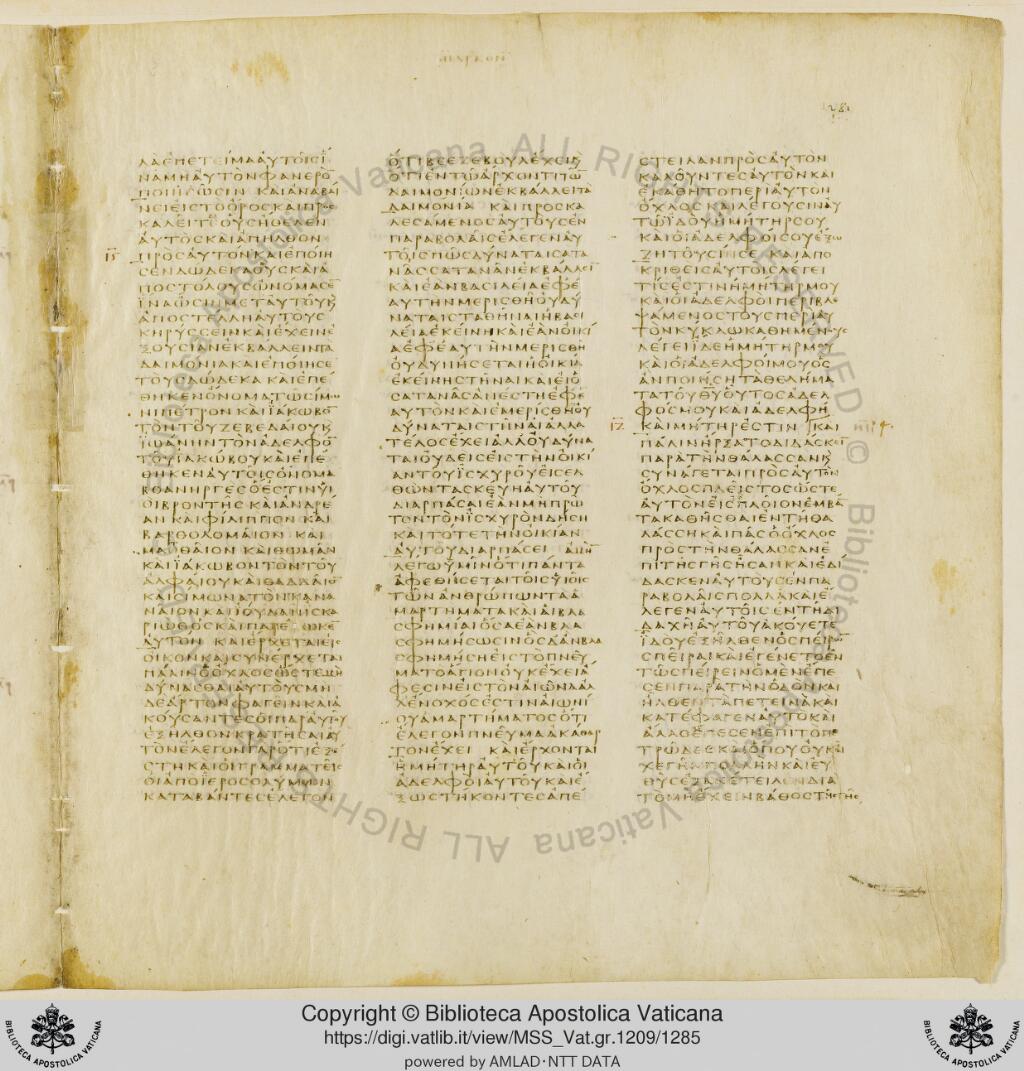 ΜΑΡΚΟΝ
ΛΑΕΠΕΤΕΙΜΑΑΥΤΟΙϹΙ
ΝΑΜΗΑΥΤΟΝΦΑΝΕΡΟ
ΠΟΙΗϹΩϹΙΝ ΚΑΙΑΝΑΒΑΙ
ΝΕΙΕΙϹΤΟΟΡΟϹΚΑΙΠΡΟϹ
ΚΑΛΕΙΤΕΟΥϹΗΘΕΛΕΝ
ΑΥΤΟϹΚΑΙΑΠΗΛΘΟΝ
ΠΡΟϹΑΥΤΟΝΚΑΙΕΠΟΙΗ
ϹΕΝΔΩΔΕΚΑΟΥϹΚΑΙΑ
ΠΟϹΤΟΛΟΥϹΩΝΟΜΑϹΕ
ΙΝΑΩϹΙΜΕΤΑΥΤΟΥΚ
ΑΠΟϹΤΕΛΛΗΑΥΤΟΥϹ
ΚΗΡΥϹϹΕΙΝΚΑΙΕΧΕΙΝΕ
ΞΟΥϹΙΑΝΕΚΒΑΛΛΕΙΝΤΑ
ΔΑΙΜΟΝΙΑΚΑΙΕΠΟΙΗϹΕ
ΤΟΥϹΔΩΔΕΚΑ ΚΑΙΕΠΕ
ΘΗΚΕΝΟΝΟΜΑΤΩϹΙΜΩ
ΝΙΠΕΤΡΟΝΚΑΙΙΑΚΩΒΟ
ΤΟΝΤΟΥΖΕΒΕΔΑΙΟΥΚ
ΙΩΑΝΗΝΤΟΝΑΔΕΛΦΟ
ΤΟΥΙΑΚΩΒΟΥΚΑΙΕΠΕ
ΘΗΚΕΝΑΥΤΟΙϹΟΝΟΜΑ
ΒΟΑΝΗΡΓΕϹΟΕϹΤΙΝΥΙ
ΟΙΒΡΟΝΤΗϹ ΚΑΙΑΝΔΡΕ
ΑΝ ΚΑΙΦΙΛΙΠΠΟΝ ΚΑΙ
ΒΑΡΘΟΛΟΜΑΙΟΝ ΚΑΙ
ΜΑΘΘΑΙΟΝ ΚΑΙΘΩΜΑΝ
ΚΑΙΙΑΚΩΒΟΝΤΟΝΤΟΥ
ΑΛΦΑΙΟΥΚΑΙΘΑΔΔΑΙΟ
ΚΑΙϹΙΜΩΝΑΤΟΝΚΑΝΑ
ΝΑΙΟΝ ΚΑΙΙΟΥΔΑΝΙϹΚΑ
ΡΙΩΘΟϹΚΑΙΠΑΡΕΔΩΚΕ
ΑΥΤΟΝ ΚΑΙΕΡΧΕΤΑΙΕΙϹ
ΟΙΚΟΝΚΑΙϹΥΝΕΡΧΕΤΑΙ
ΠΑΛΙΝΟΟΧΛΟϹΩϹΤΕΜΗ
ΔΥΝΑϹΘΑΙΑΥΤΟΥϹΜΗ
ΔΕΑΡΤΟΝΦΑΓΕΙΝΚΑΙΑ
ΚΟΥϹΑΝΤΕϹΟΙΠΑΡΑΥΤΟΥ
ΕΞΗΛΘΟΝΚΡΑΤΗϹΑΙΑΥ
ΤΟΝΕΛΕΓΟΝΓΑΡΟΤΙΕΞΕ
ϹΤΗΚΑΙΟΙΓΡΑΜΜΑΤΕΙϹ
ΟΙΑΠΟΙΕΡΟϹΟΛΥΜΩΝ
ΚΑΤΑΒΑΝΤΕϹΕΛΕΓΟΝ
ΟΤΙΒΕΕΖΕΒΟΥΛΕΧΕΙΚ
ΟΤΙΕΝΤΩΑΡΧΟΝΤΙΤΩ
ΔΑΙΜΟΝΙΩΝΕΚΒΑΛΛΕΙΤΑ
ΔΑΙΜΟΝΙΑ ΚΑΙΠΡΟϹΚΑ
ΛΕϹΑΜΕΝΟϹΑΥΤΟΥϹΕΝ
ΠΑΡΑΒΟΛΑΙϹΕΛΕΓΕΝΑΥ
ΤΟΙϹΠΩϹΔΥΝΑΤΑΙϹΑΤΑ
ΝΑϹϹΑΤΑΝΑΝΕΚΒΑΛΛΕΙ
ΚΑΙΕΑΝΒΑϹΙΛΕΙΑΕΦΕ
ΑΥΤΗΝΜΕΡΙϹΘΗΟΥΔΥ
ΝΑΤΑΙϹΤΑΘΗΝΑΙΗΒΑϹΙ
ΛΕΙΑΕΚΕΙΝΗΚΑΙΕΑΝΟΙΚΙ
ΑΕΦΕΑΥΤΗΝΜΕΡΙϹΘΗ
ΟΥΔΥΝΗϹΕΤΑΙΗΟΙΚΙΑ
ΕΚΕΙΝΗϹΤΗΝΑΙ ΚΑΙΕΙΟ
ϹΑΤΑΝΑϹΑΝΕϹΤΗΕΦΕ
ΑΥΤΟΝΚΑΙΕΜΕΡΙϹΘΗΟΥ
ΔΥΝΑΤΑΙϹΤΗΝΑΙΑΛΛΑ
ΤΕΛΟϹΕΧΕΙΑΛΛΟΥΔΥΝΑ
ΤΑΙΟΥΔΕΙϹΕΙϹΤΗΝΟΙΚΙ
ΑΝΤΟΥΙϹΧΥΡΟΥΕΙϹΕΛ
ΘΩΝΤΑϹΚΕΥΗΑΥΤΟΥ
ΔΙΑΡΠΑϹΑΙΕΑΝΜΗΠΡΩ
ΤΟΝΤΟΝΙϹΧΥΡΟΝΔΗϹΗ
ΚΑΙΤΟΤΕΤΗΝΟΙΚΙΑΝ
ΑΥΤΟΥΔΙΑΡΠΑϹΕΙ ΑΜΗΝ
ΛΕΓΩΥΜΙΝΟΤΙΠΑΝΤΑ
ΑΦΕΘΗϹΕΤΑΙΤΟΙϹΥΙΟΙϹ
ΤΩΝΑΝΘΡΩΠΩΝΤΑΑ
ΜΑΡΤΗΜΑΤΑΚΑΙΑΙΒΛΑ
ϹΦΗΜΙΑΙΟϹΑΕΑΝΒΛΑ
ϹΦΗΜΗϹΩϹΙΝΟϹΔΑΝΒΛΑ
ϹΦΗΜΗϹΗΕΙϹΤΟΠΝΕΥ
ΜΑΤΟΑΓΙΟΝΟΥΚΕΧΕΙΑ
ΦΕϹΙΝΕΙϹΤΟΝΑΙΩΝΑΑΛ
ΛΕΝΟΧΟϹΕϹΤΙΝΑΙΩΝΙ
ΟΥΑΜΑΡΤΗΜΑΤΟϹΟΤΙ
ΕΛΕΓΟΝΠΝΕΥΜΑΑΚΑΘΑΡ
ΤΟΝΕΧΕΙ ΚΑΙΕΡΧΟΝΤΑΙ
ΗΜΗΤΗΡΑΥΤΟΥΚΑΙΟΙ
ΑΔΕΛΦΟΙΑΥΤΟΥΚΑΙΕ
ΞΩϹΤΗΚΟΝΤΕϹΑΠΕ
ϹΤΕΙΛΑΝΠΡΟϹΑΥΤΟΝ
ΚΑΛΟΥΝΤΕϹΑΥΤΟΝΚΑΙ
ΕΚΑΘΗΤΟΠΕΡΙΑΥΤΟΝ
ΟΧΛΟϹΚΑΙΛΕΓΟΥϹΙΝΑΥ
ΤΩΙΔΟΥΗΜΗΤΗΡϹΟΥ
ΚΑΙΟΙΑΔΕΛΦΟΙϹΟΥΕΞΩ
ΖΗΤΟΥϹΙΝϹΕ ΚΑΙΑΠΟ
ΚΡΙΘΕΙϹΑΥΤΟΙϹΛΕΓΕΙ
ΤΙϹΕϹΤΙΝΗΜΗΤΗΡΜΟΥ
ΚΑΙΟΙΑΔΕΛΦΟΙΠΕΡΙΒΛΕ
ΨΑΜΕΝΟϹΤΟΥϹΠΕΡΙΑΥ
ΤΟΝΚΥΚΛΩΚΑΘΗΜΕΝΟΥϹ
ΛΕΓΕΙΙΔΕΗΜΗΤΗΡΜΟΥ
ΚΑΙΟΙΑΔΕΛΦΟΙΜΟΥΟϹ
ΑΝΠΟΙΗϹΗΤΑΘΕΛΗΜΑ
ΤΑΤΟΥΘΥΟΥΤΟϹΑΔΕΛ
ΦΟϹΜΟΥΚΑΙΑΔΕΛΦΗ
ΚΑΙΜΗΤΗΡΕϹΤΙΝ ΚΑΙ
ΠΑΛΙΝΗΡΞΑΤΟΔΙΔΑϹΚΕΙ
ΠΑΡΑΤΗΝΘΑΛΑϹϹΑΝΚ
ϹΥΝΑΓΕΤΑΙΠΡΟϹΑΥΤΟΝ
ΟΧΛΟϹΠΛΕΙϹΤΟϹΩϹΤΕ
ΑΥΤΟΝΕΙϹΠΛΟΙΟΝΕΜΒΑ
ΤΑΚΑΘΗϹΘΑΙΕΝΤΗΘΑ
ΛΑϹϹΗΚΑΙΠΑϹΟΟΧΛΟϹ
ΠΡΟϹΤΗΝΘΑΛΑϹϹΑΝΕ
ΠΙΤΗϹΓΗϹΗϹΑΝΚΑΙΕΔΙ
ΔΑϹΚΕΝΑΥΤΟΥϹΕΝΠΑ
ΡΑΒΟΛΑΙϹΠΟΛΛΑΚΑΙΕ
ΛΕΓΕΝΑΥΤΟΙϹΕΝΤΗΔΙ
ΔΑΧΗΑΥΤΟΥΑΚΟΥΕΤΕ
ΙΔΟΥΕΞΗΛΘΕΝΟϹΠΕΙΡΩ
ϹΠΕΙΡΑΙΚΑΙΕΓΕΝΕΤΟΕΝ
ΤΩϹΠΕΙΡΕΙΝΟΜΕΝΕΠΕ
ϹΕΝΠΑΡΑΤΗΝΟΔΟΝΚΑΙ
ΗΛΘΕΝΤΑΠΕΤΕΙΝΑΚΑΙ
ΚΑΤΕΦΑΓΕΝΑΥΤΟΚΑΙ
ΑΛΛΟΕΠΕϹΕΝΕΠΙΤΟΠΕ
ΤΡΩΔΕϹΚΑΙΟΠΟΥΟΥΚΕΙ
ΧΕΓΗΝΠΟΛΛΗΝΚΑΙΕΥ
ΘΥϹΕΞΑΝΕΤΕΙΛΕΝΔΙΑ
ΤΟΜΗΕΧΕΙΝΒΑΘΟϹΤΗϹΓΗϹ
Copyright © Biblioteca Apostolica Vaticana
https://digi.vatlib.it/view/MSS_Vat.gr.1209/1285
powered by AMLAD·NTT DATA
BIBLIOTECA APOSTOLICA VATICANA
BIBLIOTECA APOSTOLICA VATICANA